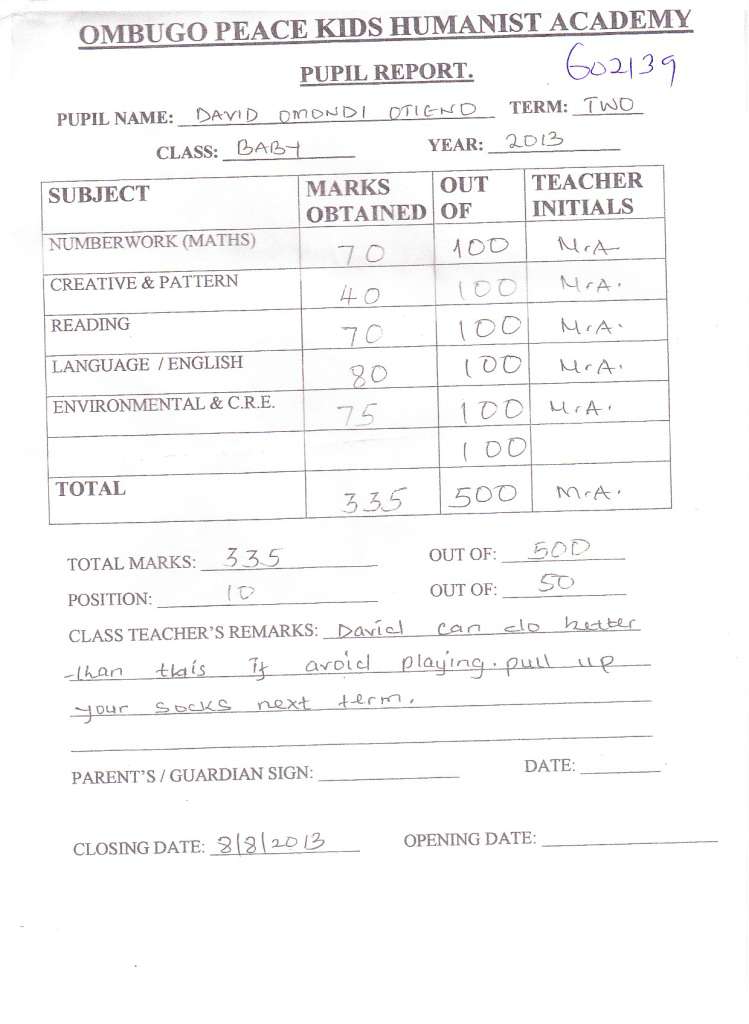 OMBUGO PEACE KIDS HUMANIST ACADEMY
PUPIL REPORT. 602139
PUPIL NAME: DAVID OMONDI OTIENO TERM: TWO
CLASS: BABY YEAR: 2013
SUBJECT MARKS OBTAINED OUT OF TEACHER INITIALS
NUMBERWORK (MATHS) 70 100 M.A
CREATIVE & PATTERN 40 100 M.A.
READING 70 100 M.A.
LANGUAGE / ENGLISH 80 100 M.A.
ENVIRONMENTAL & C.R.E. 75 100 M.A.
100
TOTAL 335 500 M.A.
TOTAL MARKS: 335 OUT OF: 500
POSITION: 10 OUT OF: 50
CLASS TEACHER'S REMARKS: David can do better
than this if avoid playing. pull up
your socks next term.
PARENT'S / GUARDIAN SIGN: DATE:
CLOSING DATE: 8/8/2013 OPENING DATE: